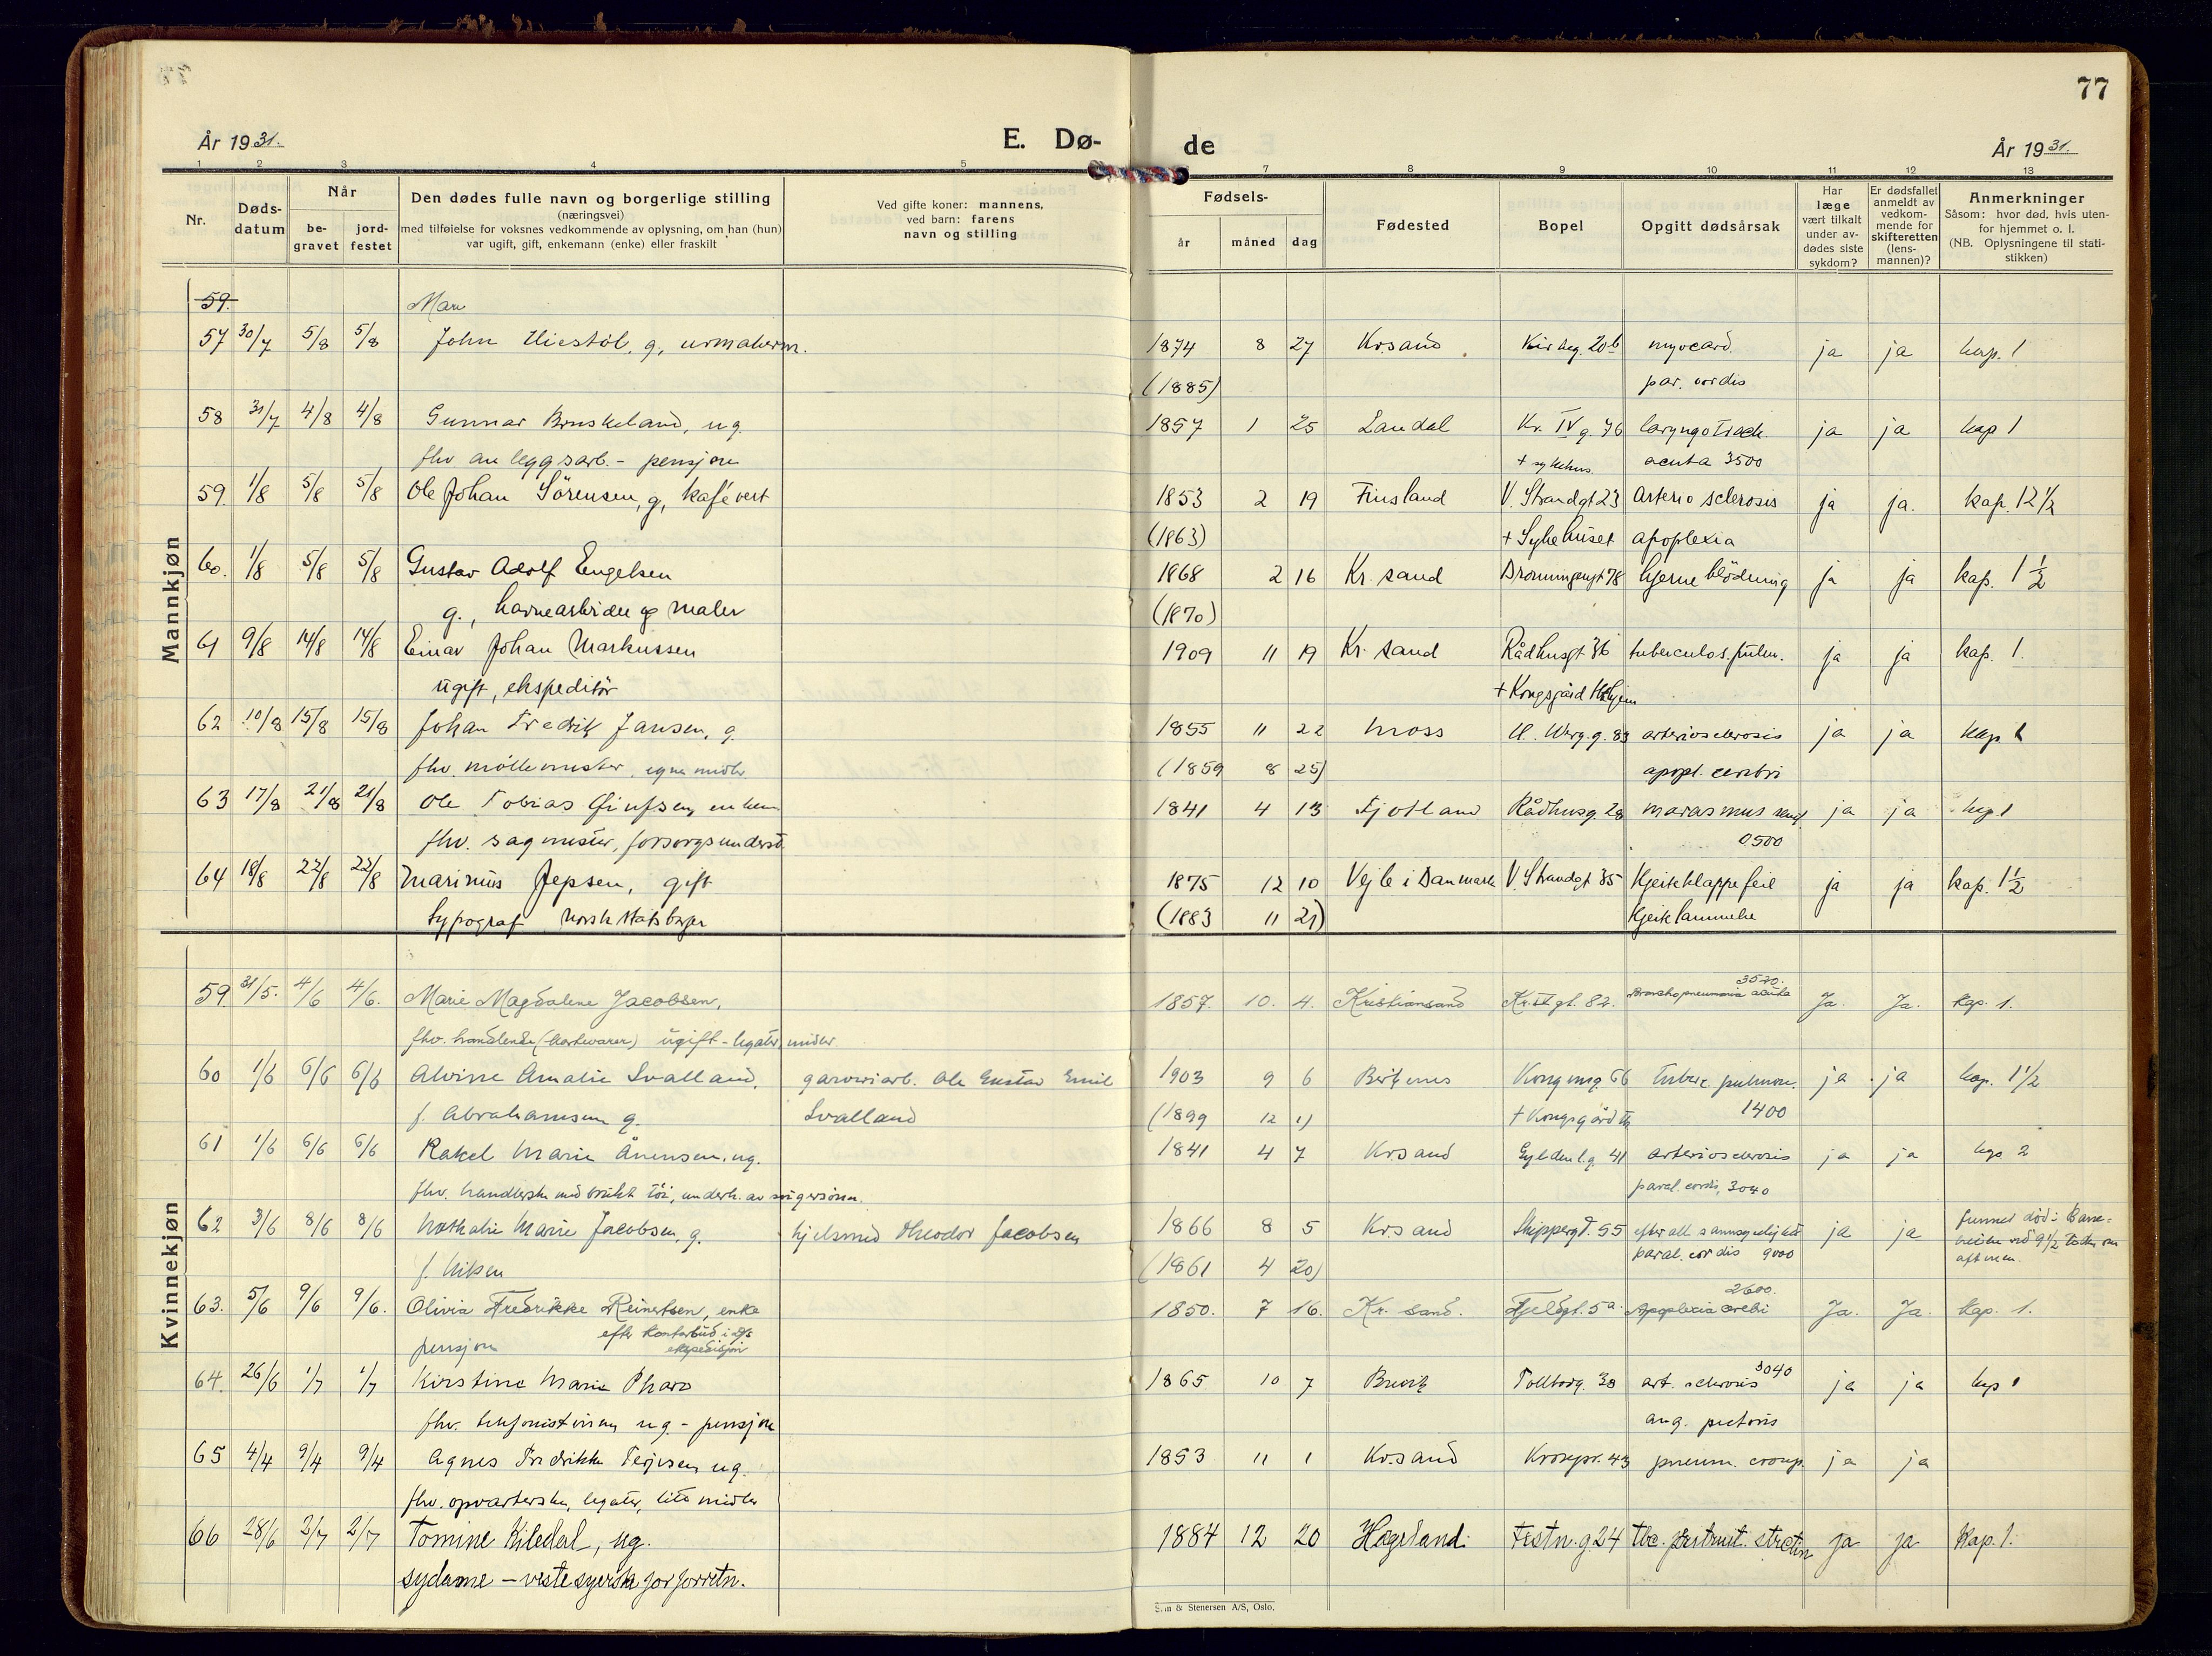 77
År 1931.
E. Dø-
de
År 1931.
1 2 3 4 5 7 8 9 10 11 12 13
Nr.
Døds-
datum
Når
be-
gravet
jord-
festet
Den dødes fulle navn og borgerlige stilling
(næringsvei)
med tilføielse for voksnes vedkommende av oplysning, om han (hun)
var ugift, gift, enkemann (enke) eller fraskilt
Ved gifte koner: mannens,
ved barn: farens
navn og stilling
Fødsels-
år måned dag
Fødested
Bopel
Opgitt dødsårsak
Har
læge
vært tilkalt
under av-
dødes siste
sykdom?
Er dødsfallet
anmeldt av
vedkom-
mende for
skifteretten
(lens-
mannen)?
Anmerkninger
Såsom: hvor død, hvis uten-
for hjemmet o. l.
(NB. Oplysningene til stati-
stikken)
Mannkjøn
59.
57 30/7 5/8 5/8 John g, urmakerm. 1874 8 27 Krsand 20b myocard. ja ja kap. 1
(1885) par. cordis
58 31/7 4/8 4/8 Gunnar Bruskeland, ug. 1857 1 25 Laudal Kr. IV g. 76 ja ja kap 1
fhv anleggsarb. - pensjon + sykehus. acuta 3500
59. 1/8 5/8 5/8 Ole Johan Sörensen, g, kafévert 1853 2 19 Finsland V. Strandgt 23 Arterio sclerosis ja ja. kap. 12 1/2
(1863) + Sykehuset apoplexia
60. 1/8 5/8 5/8 Gustav Adolf Engelsen 1868 2 16 Kr. sand Dronningensgt 78 hjerneblödning ja ja kap. 1 1/2
g., havnearbeider og maler (1870)
61 9/8 14/8 14/8 Einar Johan Markussen 1909 11 19 Kr. sand Rådhusgt 36 tuberculos. pulm. ja ja kap. 1.
ugift, ekspeditör + Kongsgård
62 10/8 15/8 15/8 Johan Fredrik Jansen, g. 1855 11 22 Moss 83 arteriosclerosis ja ja kap 1
fhv. möllemester, egne midler (1859 8 25) apopl. cerebri
63 17/8 21/8 21/8 Ole Tobias enkem 1841 4 13 Fjotland Rådhusg. 28 marasmus ja ja kap 1
fhv. sagmester, forsorgsunderst. 0500
64 18/8 22/8 22/8 Marinus Jepsen, gift 1875 12 10 Vejle i Danmark V. Strandgt 35 Hjerteklappefeil ja ja kap. 1 1/2
typograf norsk statsborger (1883 11 21) Hjertelammelse
Kvinnekjøn
59 31/5. 4/6 4/6. Marie Magdalene Jacobsen, 1857. 10. 4. Kristiansand Kr. IV gt. 82. 3570. Bronchopneumonia acuta Ja. Ja. kap. 1.
fhv. handlende (kortevarer) ugift - legater, midler
60 1/6 6/6 6/6 Alvine Amalie Svalland, garveriarb. Ole Gustav Emil 1903 9 6 Birkenes Kongensg. 66 Tuberc. pulmon. ja ja kap. 1 1/2
f. Abrahamsen g. Svalland (1899 12 1) + Kongsgård 1400
61 1/6 6/6 6/6 Rakel Marie Ånensen, ug. 1841 4 7 Krsand Gyldenl.g 41 arteriosclerosis ja ja kap 2
fhv. handlerske med brukt töi, underh. av svigersönn. paral. cordis, 3040
62 3/6 8/6 8/6 Nathalie Marie Jacobsen, g. hjelsmed Theodor Jacobsen 1866 8 5 Krsand Skippergt. 55 efter all sannsynlighet ja ja funnet död i Bane-
f. (1861 4 20) paral. cordis 9000 heien ved 9 1/2 tiden om
aftenen.
63. 5/6 9/6 9/6. Olivia Fredrikke Reinertsen, enke 1850. 7 16. Kr. sand. Fjeldgt. 5a. 2600. Apoplexia cerebri Ja. Ja. Kap. 1.
pensjon efter kontorbud i d/s ekspedisjon
64. 26/6 1/7 1/7 Kirstine Marie Pharo 1865 10 7 Brevik Tollbodg. 38 art. sclerosis 3040 ja ja kap 1
fhv. telefonistinne ug - pensjon ang. pectoris
65 4/4 9/4 9/4 Agnes Fredrikke Terjesen ug. 1853 11 1 Krsand Kronprs. 43 pneum. croup. ja ja
fhv. opvarterske, legater, litt midler
66 28/6 2/7 2/7 Tomine Kiledal, ug. 1884 12 20 Hægeland. Festn.g. 24 tbc. ja ja Kap. 1.
sydame - vestesyerske for forretn.
& Stenersen A/S, Oslo.